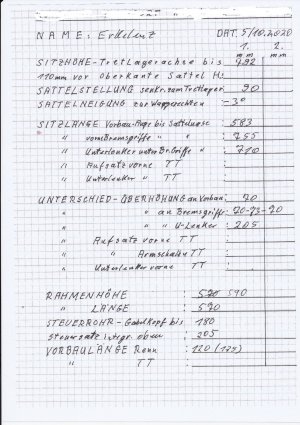 NAME: Erkelenz DAT. 5/10.2020
1. 2.
mm mm
SITZHÖHE-Tretlagerachse bis : 792
110mm vor Oberkante Sattel H:
SATTELSTELLUNG senkr. zum Tretlager : 90
SATTELNEIGUNG zur Waagerechten : -3°
SITZLÄNGE Vorbau-Auge bis Sattelnase : 583
" vorn Bremsgriffe " " : 755
" Unterlenker unter Br. Griffe " : 710
" Aufsatz vorne TT :
" Unterlenker " TT :
UNTERSCHIED-ÜBERHÖHUNG an Vorbau : 70
" " an Bremsgriffe : 70-73-70
" " " U-Lenker : 205
" Aufsatz vorne TT :
" " Armschalen TT :
" Unterlenker vorne TT :
RAHMENHÖHE : 590
" LÄNGE : 590
STEUERROHR-Gabelkopf bis : 180
Steuersatz integr. oben : 205
VORBAULÄNGE Renn : 120 (125)
" TT :